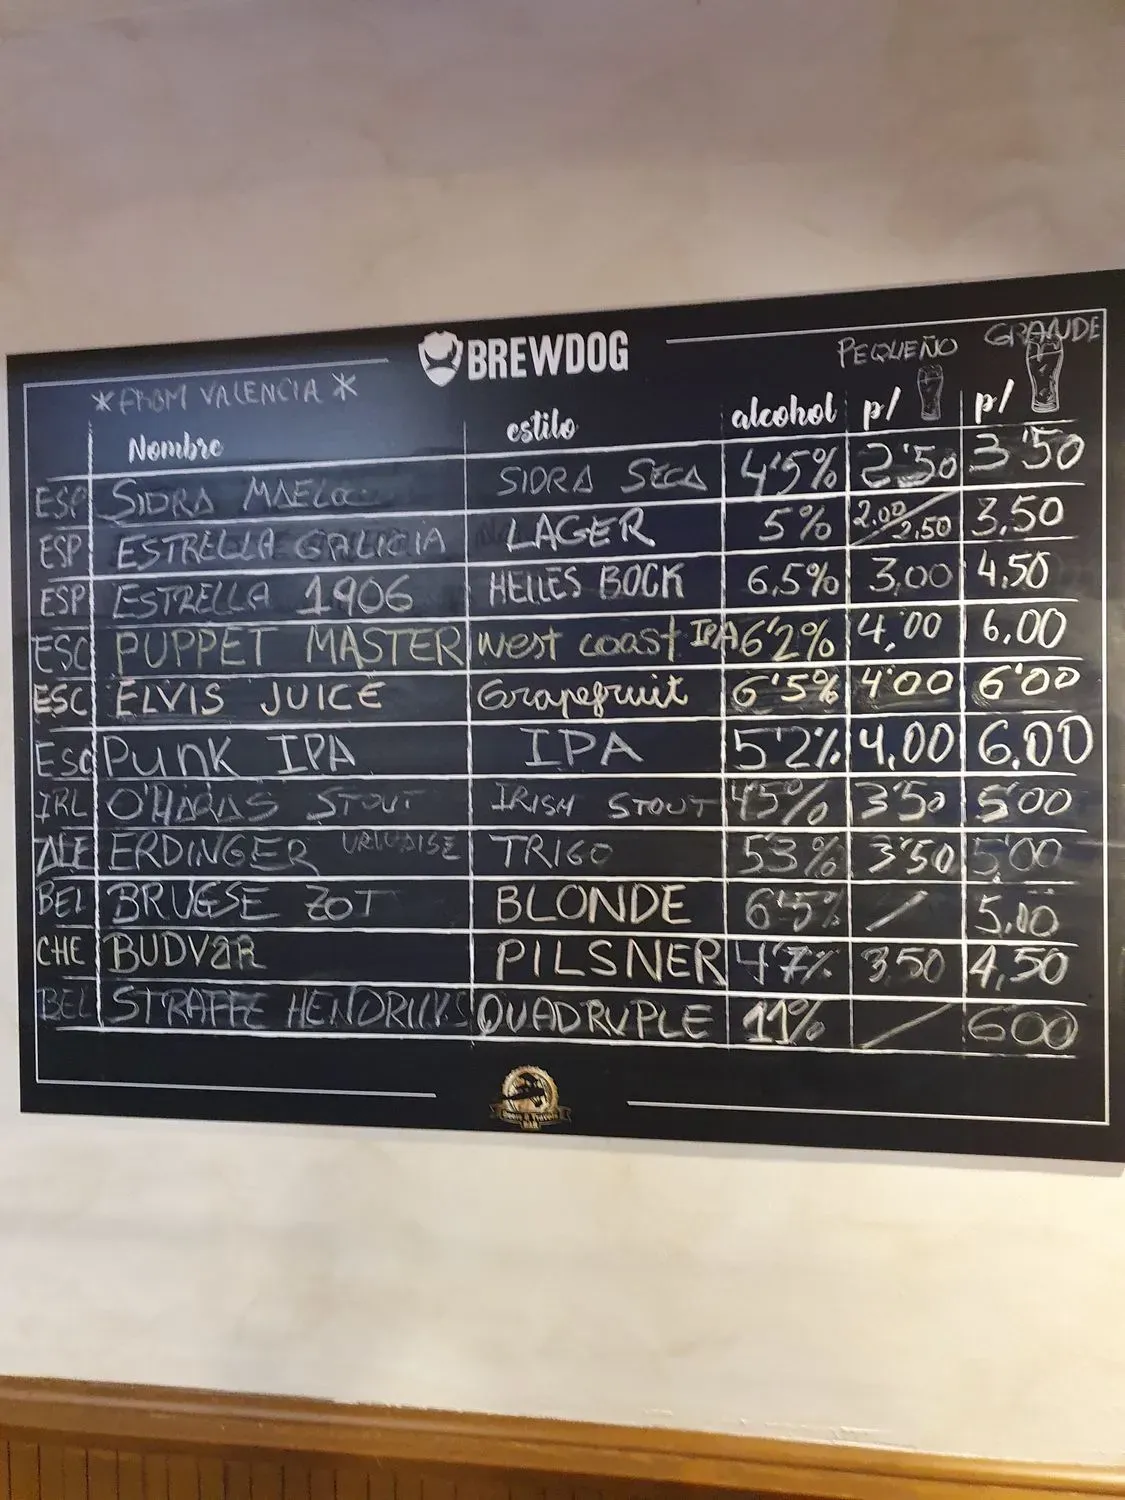 BREWDOG
PEQUEÑO GRANDE
*FROM VALENCIA*
Nombre estilo alcohol p/ p/
ESP SIDRA MAELOC SIDRA SECA 4'5% 2'50 3'50
ESP ESTRELLA GALICIA LAGER 5% 2.00/2,50 3,50
ESP ESTRELLA 1906 HELLES BOCK 6,5% 3,00 4,50
ESC PUPPET MASTER west coast IPA 6'2% 4,00 6,00
ESC ELVIS JUICE Grapefruit 6'5% 4'00 6'00
ESC Punk IPA IPA 5'2% 4,00 6,00
IRL O'HARAS STOUT IRISH STOUT 4'5% 3'50 5'00
ALE ERDINGER URWEISSE TRIGO 5'3% 3'50 5'00
BEL BRUGSE ZOT BLONDE 6'5% / 5,00
CHE BUDVAR PILSNER 4'7% 3,50 4,50
BEL STRAFFE HENDRIK QUADRUPLE 11% / 6'00
BAR